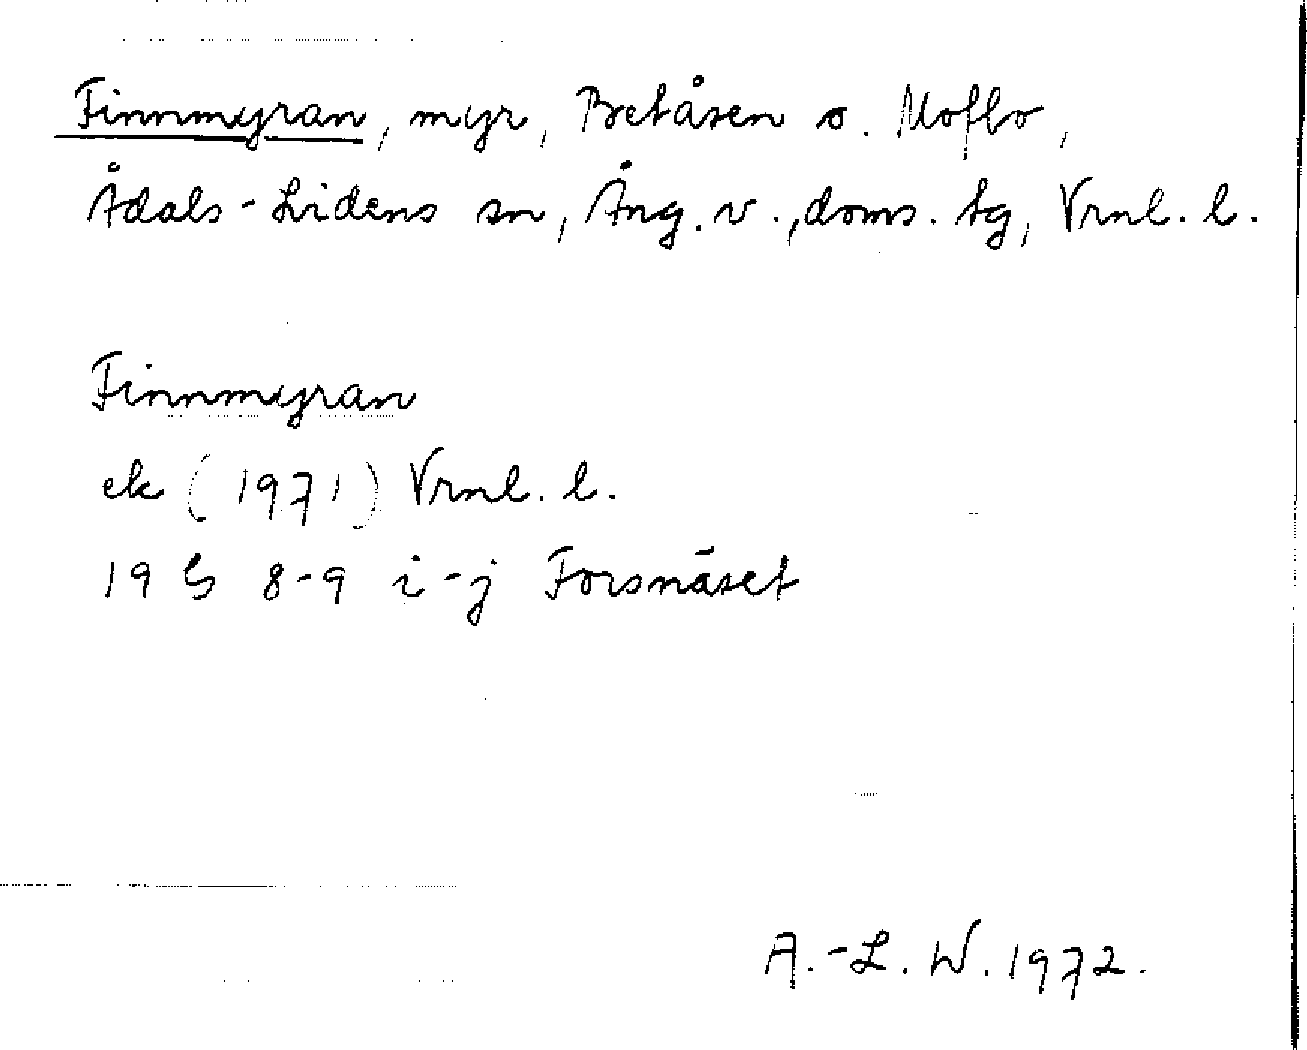 Finnmyran, myr, Betåsen o. Moflo,
Ådals-Lidens sn, Ång. v., doms. tg, Vrnl. l.
Finnmyran
ek (1971) Vrnl. l.
19 G 8-9 i-j Forsnäset
A.-L. W. 1972.